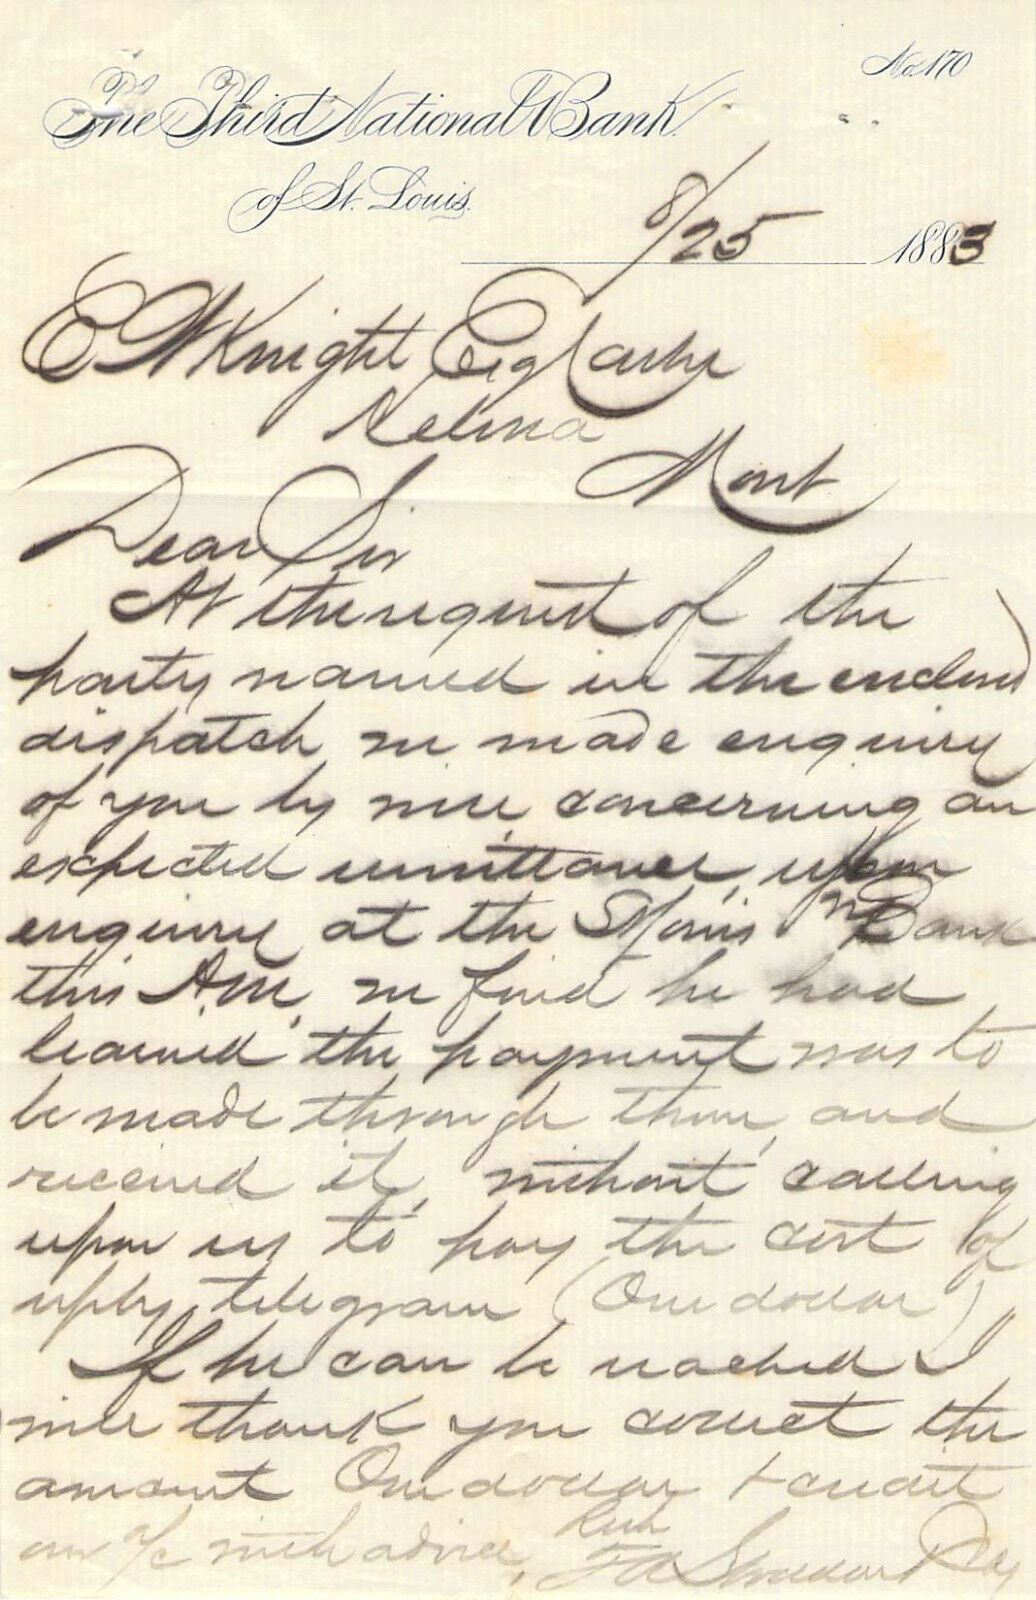 No. 170
The Third National Bank
of St. Louis.
8/25 1883
E W Knight Esq Cashr
Helena
Mont
Dear Sir
At the request of the
party named in the enclosed
dispatch we made enquiry
of you by wire, concerning an
expected remittance, upon
enquiry at the N Bank
this AM, we find he had
learned the payment was to
be made through them, and
received it, without calling
upon us to pay the cost of
reply telegram (One dollar)
If he can be reached I
will thank you collect the
amount One dollar & credit
our a/c with advice,